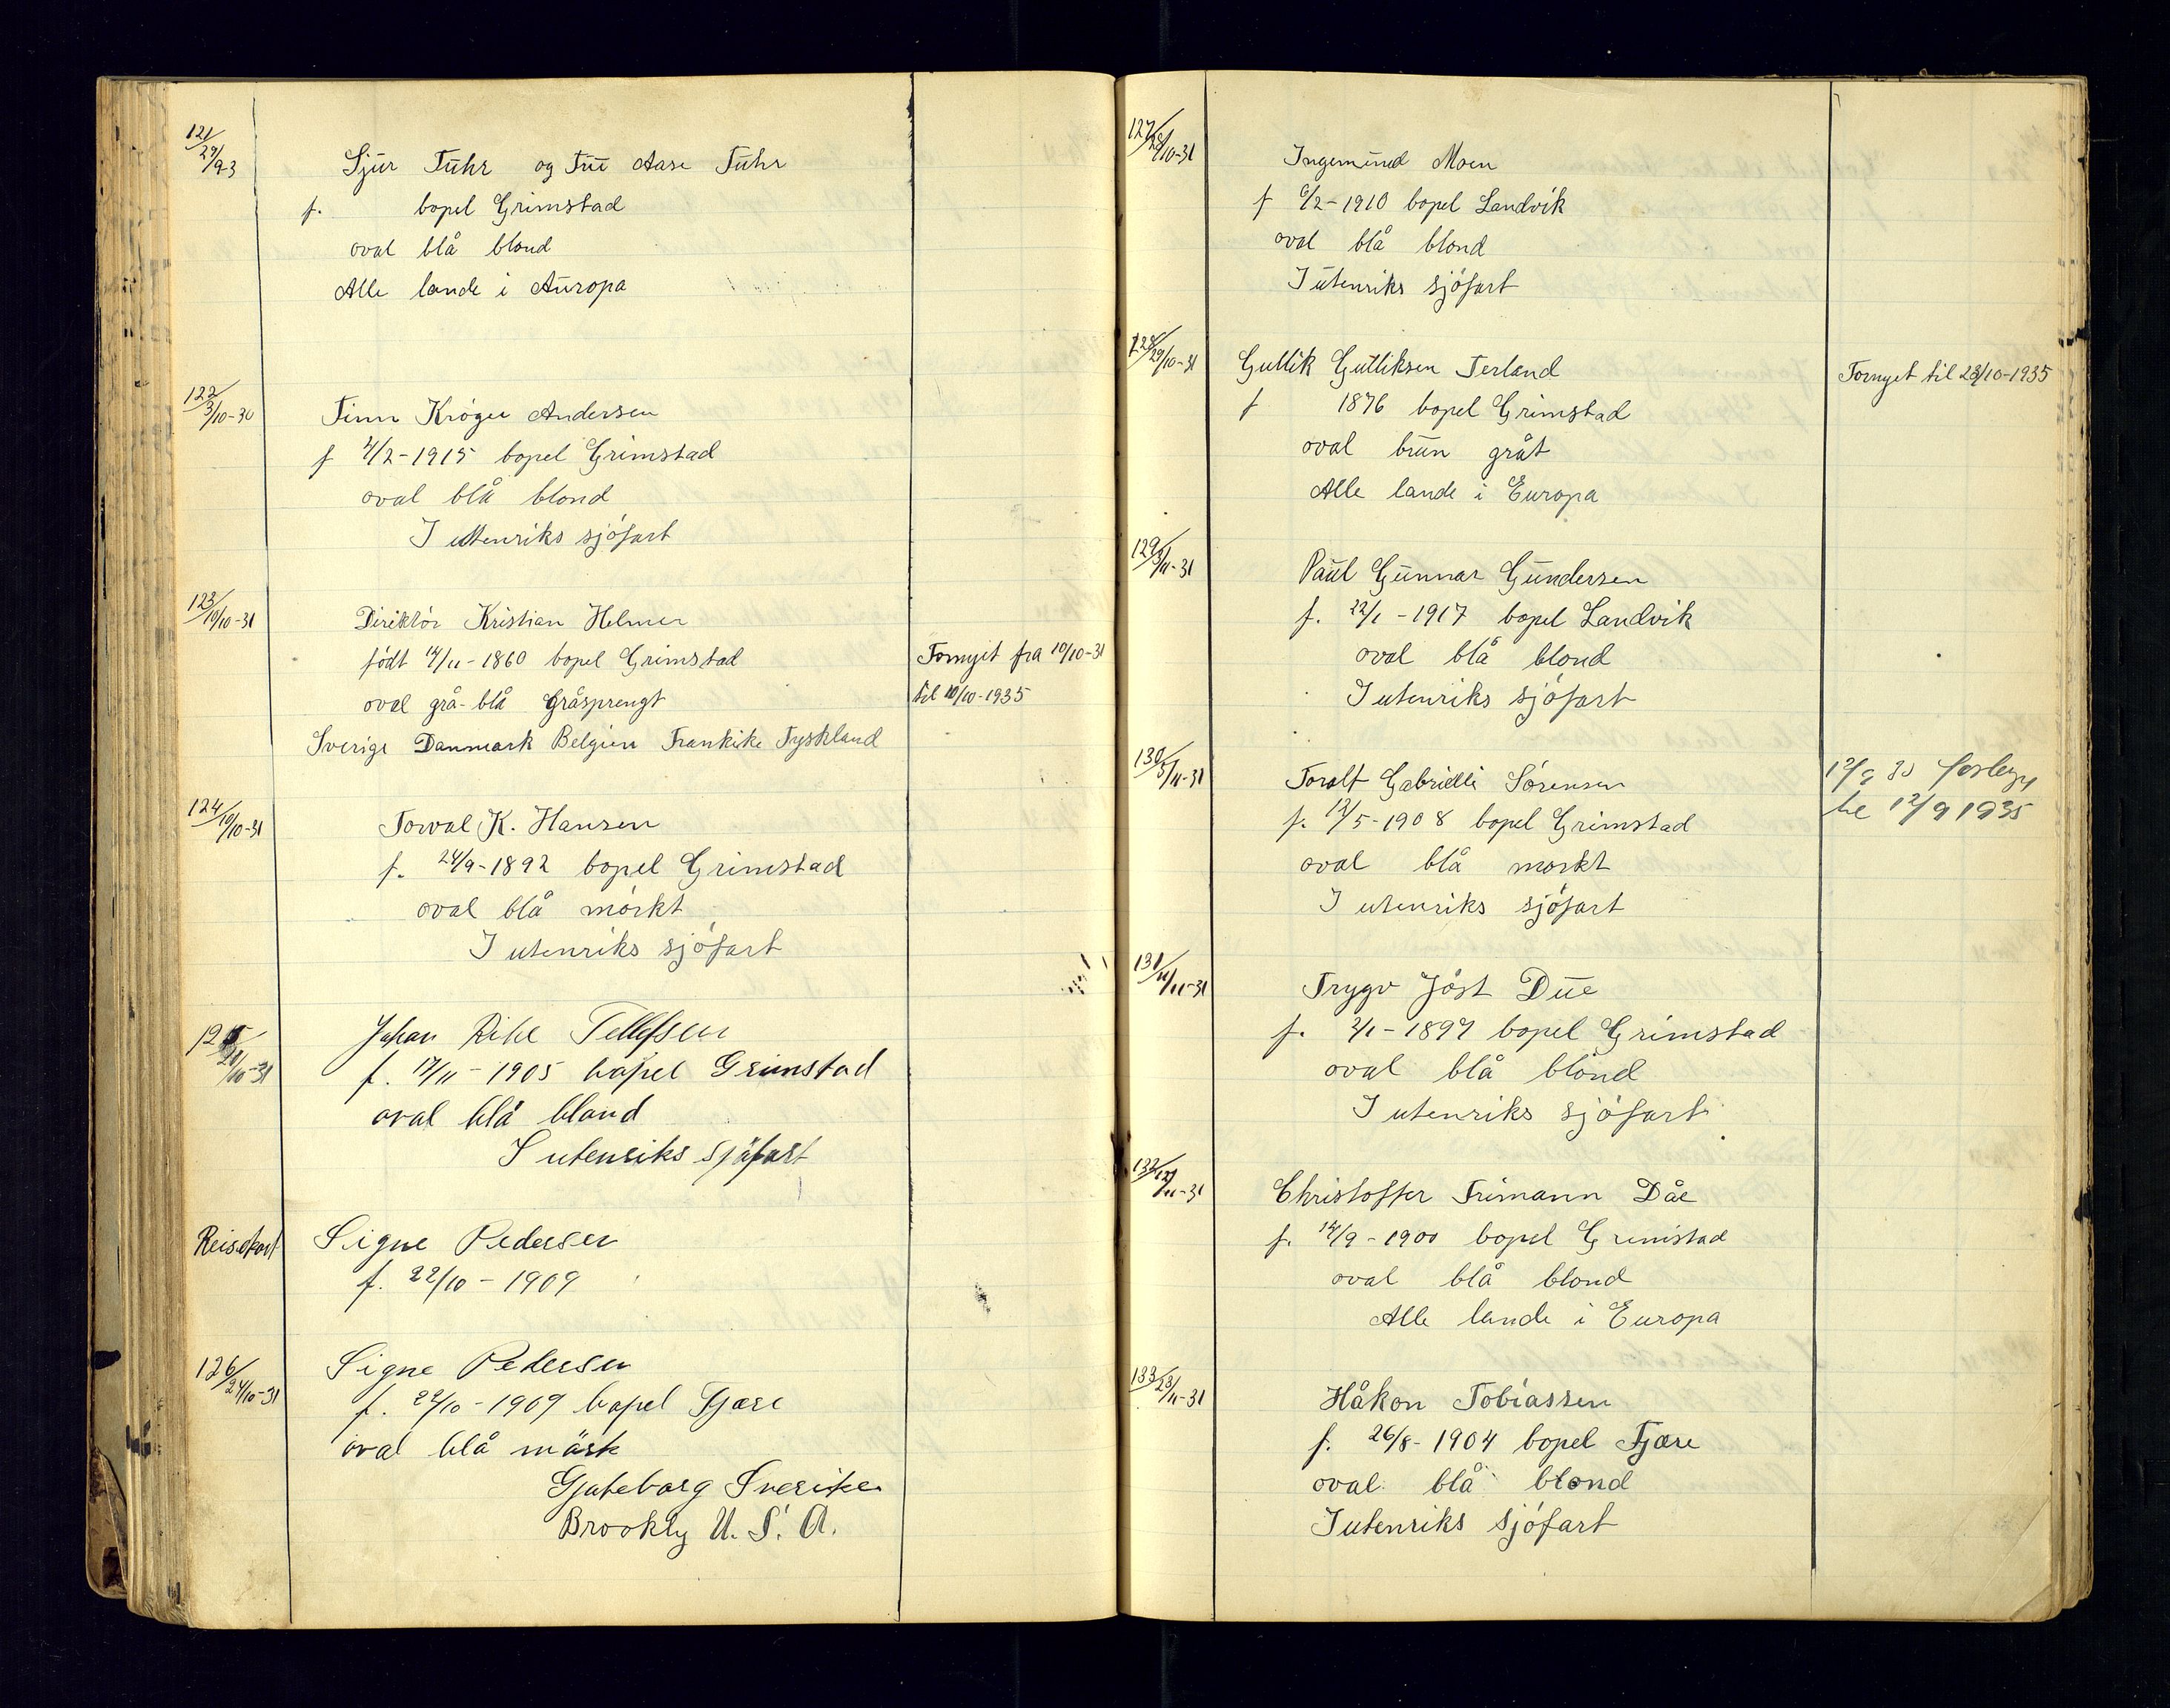 121/29/9-3
Sjur Fuhr og Fru Aase Fuhr
f. bopel Grimstad
oval blå blond
Alle lande i Auropa
122/3/10-30
Finn Kröger Andersen
f 4/2-1915 bopel Grimstad
oval blå blond
I uttenriks sjöfart
123/10/10-31
Diriktör Kristian Helmer
født 14/11-1860 bopel Grimstad
Fornyit fra 10/10-31
oval grå-blå gråsprengt
til 10/10-1935
Sverige Danmark Belgien Frankike Tyskland
124/10/10-31
Torval K. Hansen
f. 24/9-1892 bopel Grimstad
oval blå mörkt
I utenriks sjöfart
125/21/10-31
Johan Rike Tellefsen
f. 17/11-1905 bopel Grimstad
oval blå blond
I utenriks sjöfart
Reisekort
Signe Pedersen
f. 22/10-1909
126/24/10-31
Signe Pedersen
f. 22/10-1909 bopel Fjære
oval blå mörk
Gjøteborg Sverike
Brookly U.S.A.
127/28/10-31
Ingemund Moen
f 6/2-1910 bopel Landvik
oval blå blond
I utenriks sjöfart
128/29/10-31
Gullik Gulliksen Terland
Fornyet til 28/10-1935
f 1876 bopel Grimstad
oval brun gråt
Alle lande i Europa
129/3/11-31
Paul Gunnar Gundersen
f. 22/1-1917 bopel Landvik
oval blå blond
I utenriks sjöfart
130/5/11-31
Toralf Gabrielli Sörensen
12/9 33 forleng
f. 12/5-1908 bopel Grimstad
te 12/9 1935
oval blå morkt
I utenriks sjöfart
131/11/11-31
Trygv Jöst Due
f. 2/1-1897 bopel Grimstad
oval blå blond
I utenriks sjöfart
132/12/11-31
Christoffer Frimann Dåe
f. 14/9-1900 bopel Grimstad
oval blå blond
Alle lande i Europa
133/23/11-31
Håkon Tobiassen
f. 26/8-1904 bopel Fjære
oval blå blond
I utenriks sjöfart